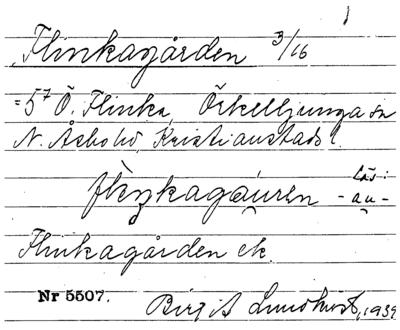 Flinkagården 3/16
= 5⁷ Ö. Flinka, Örkelljunga sn
N. Åsbo hd, Kristianstads l.
flıŋkagáu̯ren läs: -au̯-
Flinkagården ek.
Nr 5507. Birgit Lundkvist, 1939